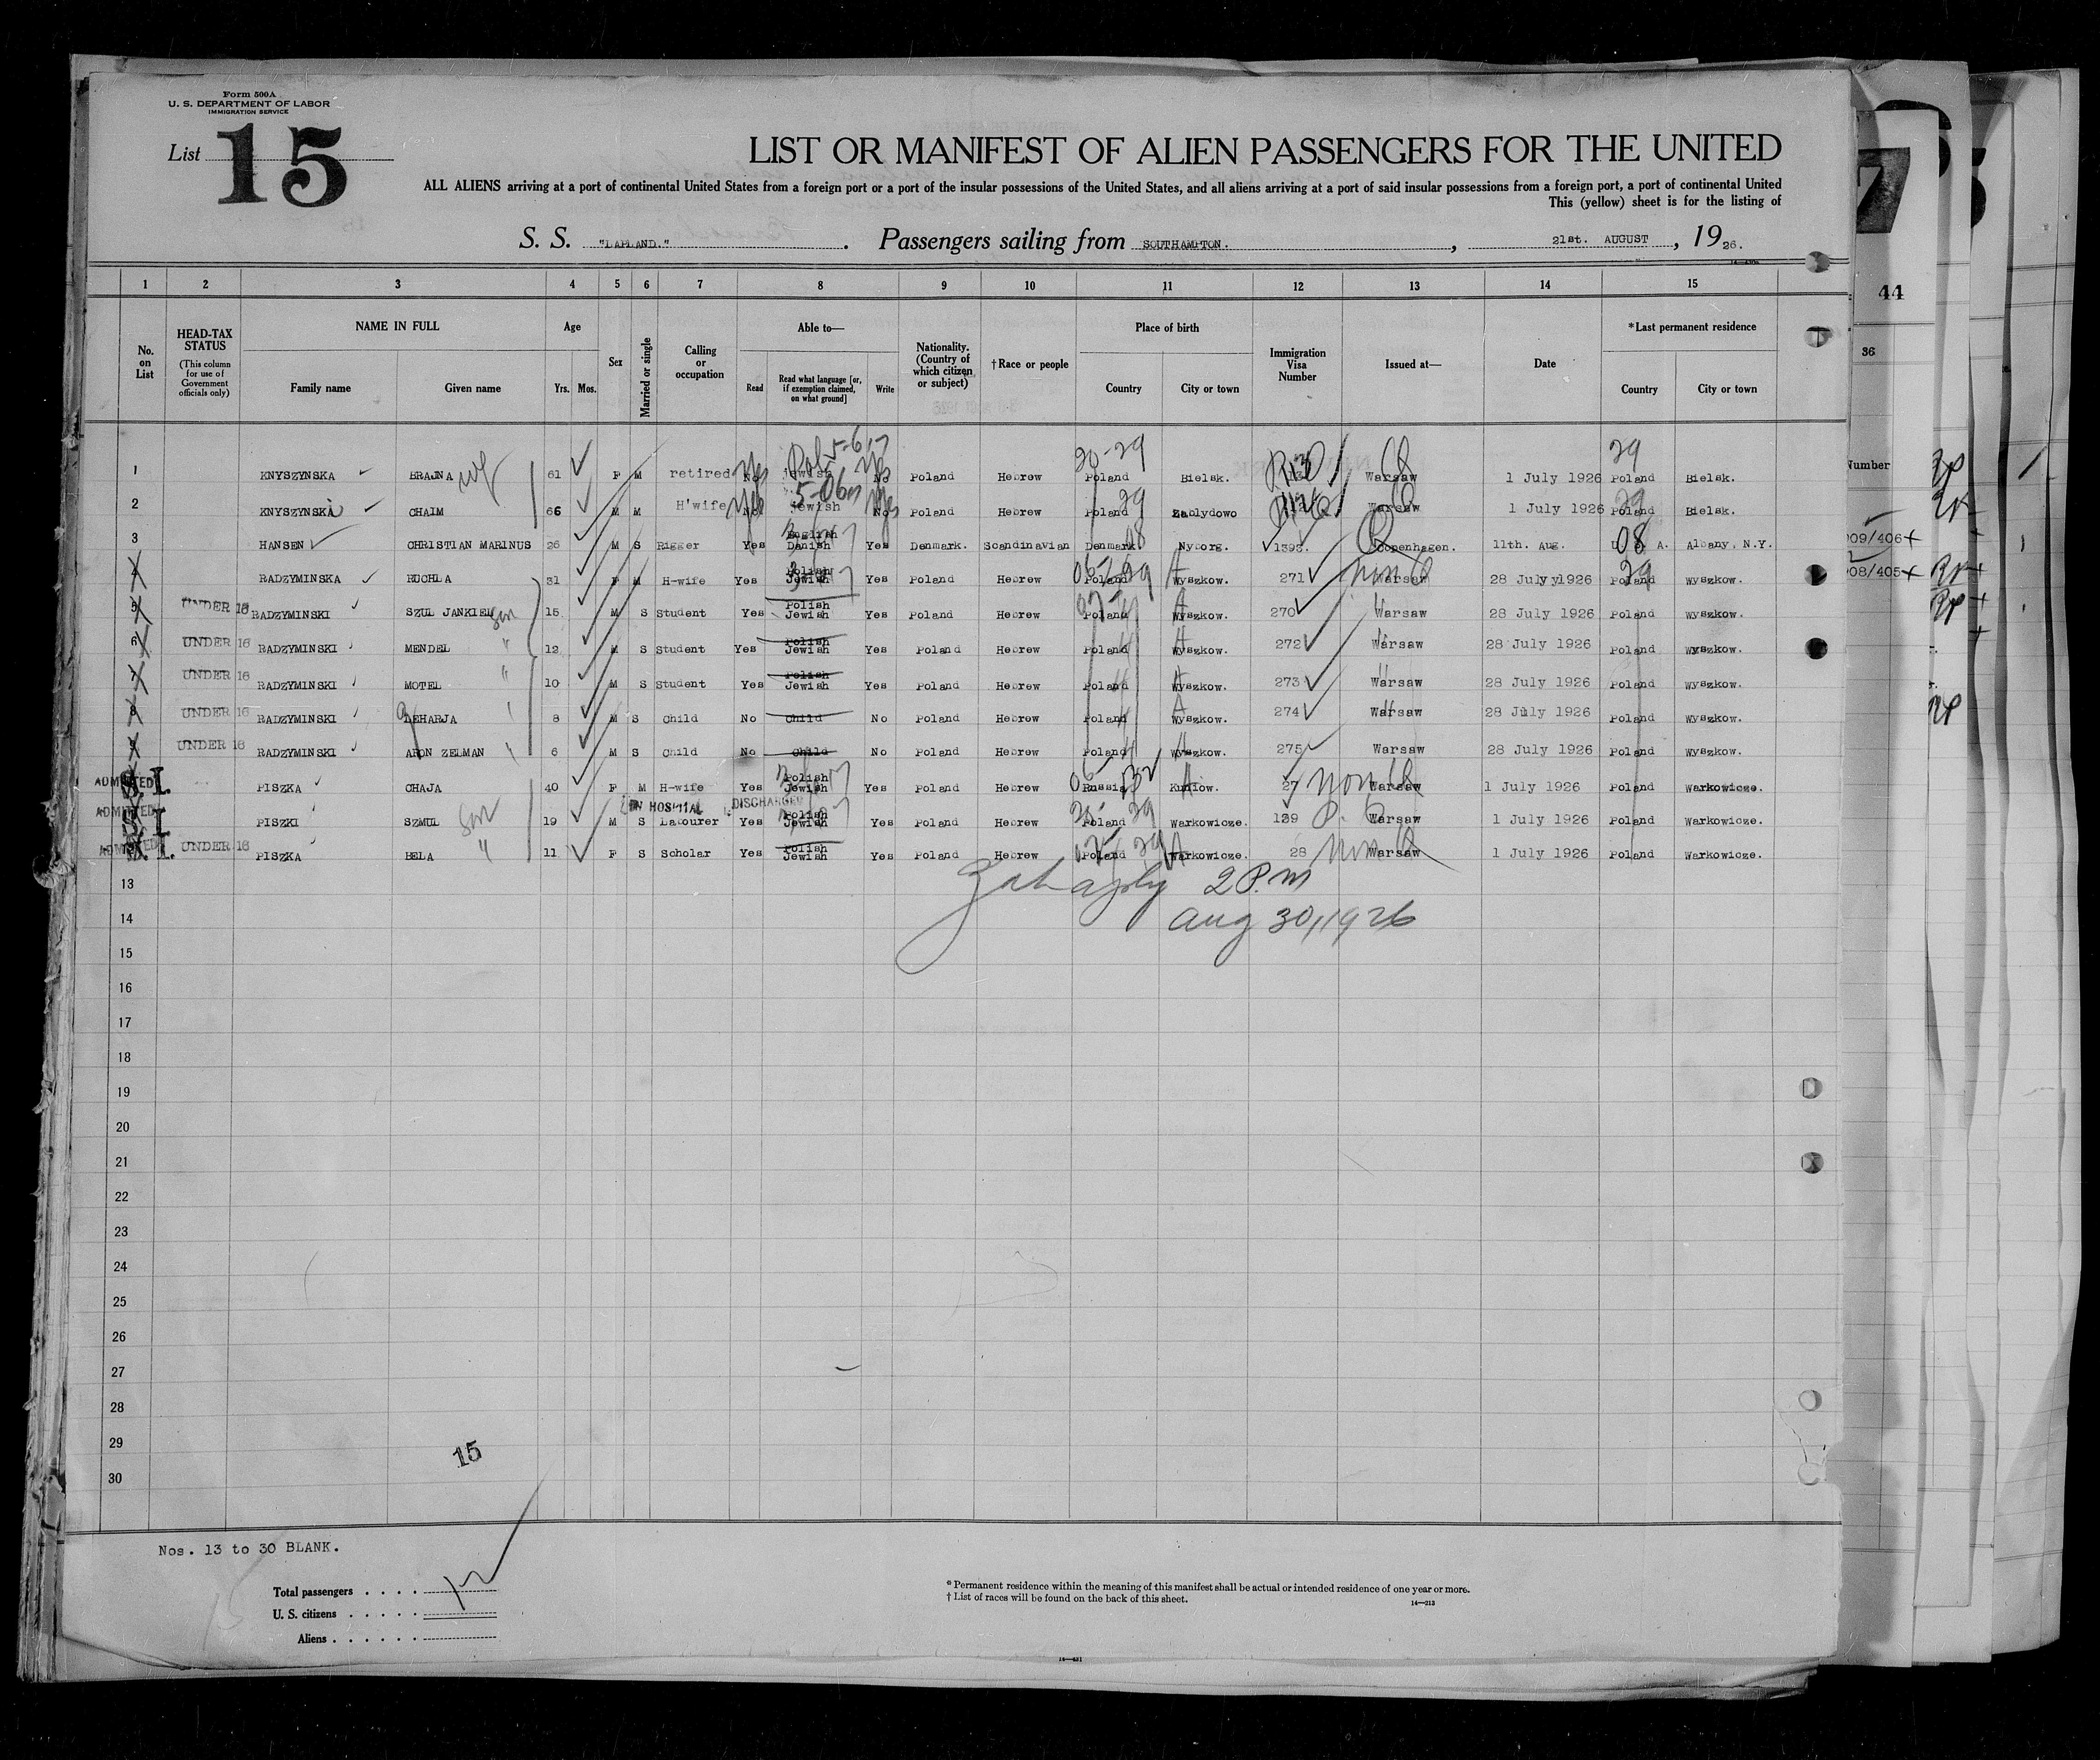 Form 500A
U. S. DEPARTMENT OF LABOR
IMMIGRATION SERVICE
List 15
LIST OR MANIFEST OF ALIEN PASSENGERS FOR THE UNITED
ALL ALIENS arriving at a port of continental United States from a foreign port or a port of the insular possessions of the United States, and all aliens arriving at a port of said insular possessions from a foreign port, a port of continental United
This (yellow) sheet is for the listing of
S. S. "LAPLAND." Passengers sailing from SOUTHAMPTON. , 21st. AUGUST , 19 26.
1 2 3 4 5 6 7 8 9 10 11 12 13 14 15
No. on List
HEAD-TAX STATUS (This column for use of Government officials only)
NAME IN FULL
Family name Given name
Age Yrs. Mos.
Sex
Married or single
Calling or occupation
Able to—
Read Read what language [or, if exemption claimed, on what ground] Write
Nationality. (Country of which citizen or subject)
†Race or people
Place of birth
Country City or town
Immigration Visa Number
Issued at—
Date
*Last permanent residence
Country City or town
44
36
Number
1 KNYSZYNSKA BRAJNA wf 61 F M retired Yes No Jewish Yes No Poland Hebrew Poland Bielsk. Warsaw 1 July 1926 Poland Bielsk.
2 KNYSZYNSKI CHAIM 66 M M H'wife Yes No Jewish Yes No Poland Hebrew Poland Zablydowo Warsaw 1 July 1926 Poland Bielsk.
3 HANSEN CHRISTIAN MARINUS 26 M S Rigger Yes English Danish Yes Denmark. Scandinavian Denmark Nyborg. 1393. Copenhagen. 11th. Aug. U. S. A. Albany, N.Y.
4 RADZYMINSKA RUCHLA 31 F M H-wife Yes Polish Jewish Yes Poland Hebrew Poland Wyszkow. 271 Warsaw 28 July 1926 Poland Wyszkow.
5 UNDER 16 RADZYMINSKI SZUL JANKIEL son 15 M S Student Yes Polish Jewish Yes Poland Hebrew Poland Wyszkow. 270 Warsaw 28 July 1926 Poland Wyszkow.
6 UNDER 16 RADZYMINSKI MENDEL " 12 M S Student Yes Polish Jewish Yes Poland Hebrew Poland Wyszkow. 272 Warsaw 28 July 1926 Poland Wyszkow.
7 UNDER 16 RADZYMINSKI MOTEL " 10 M S Student Yes Polish Jewish Yes Poland Hebrew Poland Wyszkow. 273 Warsaw 28 July 1926 Poland Wyszkow.
8 UNDER 16 RADZYMINSKI 8 M S Child No Child No Poland Hebrew Poland Wyszkow. 274 Warsaw 28 July 1926 Poland Wyszkow.
9 UNDER 16 RADZYMINSKI ARON ZELMAN " 6 M S Child No Child No Poland Hebrew Poland Wyszkow. 275 Warsaw 28 July 1926 Poland Wyszkow.
ADMITTED S.I. PISZKA CHAJA 40 F M H-wife Yes Polish Jewish Yes Poland Hebrew Russia 27 Warsaw 1 July 1926 Poland Warkowicze.
IN HOSPITAL DISCHARGED
ADMITTED S.I. PISZKI SZMUL son 19 M S Labourer Yes Polish Jewish Yes Poland Hebrew Poland Warkowicze. 139 Warsaw 1 July 1926 Poland Warkowicze.
ADMITTED S.I. UNDER 16 PISZKA BELA " 11 F S Scholar Yes Polish Jewish Yes Poland Hebrew Poland Warkowicze. 28 Warsaw 1 July 1926 Poland Warkowicze.
09/406
08/405
13 2 P.m
14 Aug 30, 1926
15
16
17
18
19
20
21
22
23
24
25
26
27
28
29
30
15
Nos. 13 to 30 BLANK.
Total passengers . . . . 12
U. S. citizens . . . . .
Aliens . . . . . .
* Permanent residence within the meaning of this manifest shall be actual or intended residence of one year or more.
† List of races will be found on the back of this sheet.
14—213